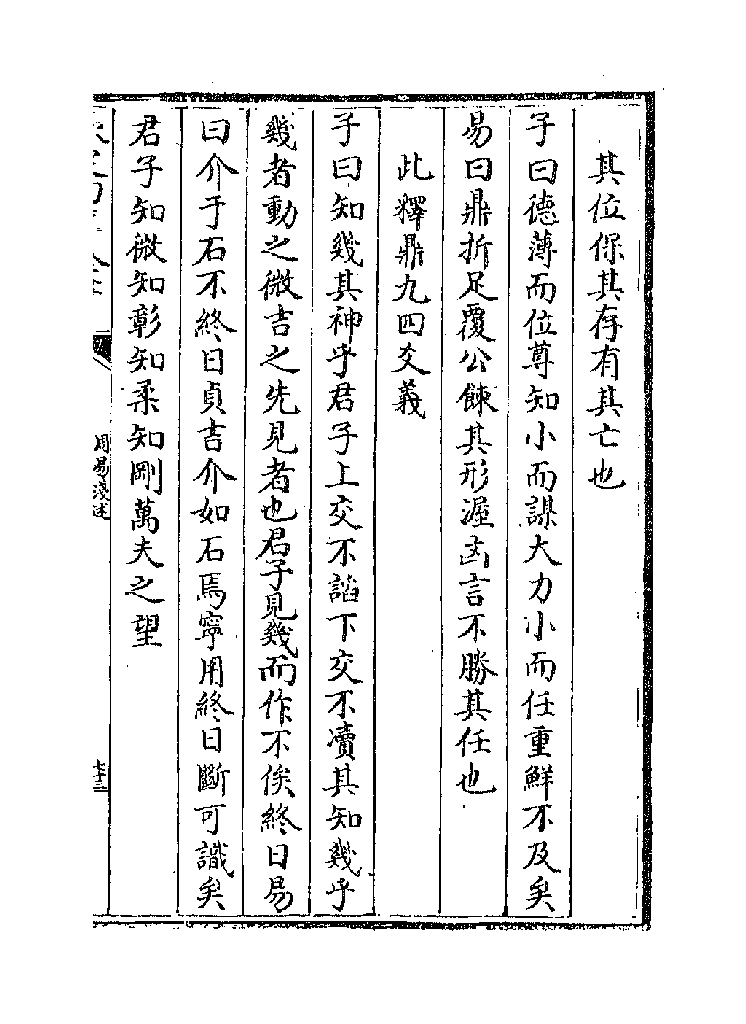 其位保其存有其亡也
子曰德薄而位尊知小而謀大力小而任重鮮不及矣
易曰鼎折足覆公餗其形渥凶言不勝其任也
此釋鼎九四爻義
子曰知幾其神乎君子上交不諂下交不凟其知幾乎
幾者動之微吉之先見者也君子見幾而作不俟終日易
曰介于石不終日貞吉介如石焉寧用終日斷可識矣
君子知微知彰知柔知剛萬夫之望
周易淺述